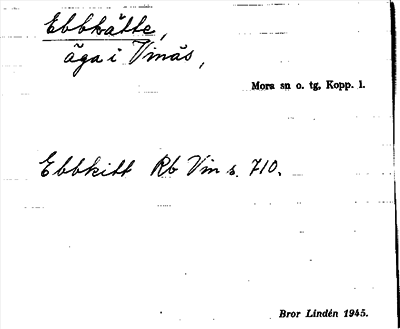 Ebbkätte,
äga i Vinäs,
Mora sn o. tg, Kopp. l.
Ebbkitt Rb Vm s. 710.
Bror Lindén 1945.